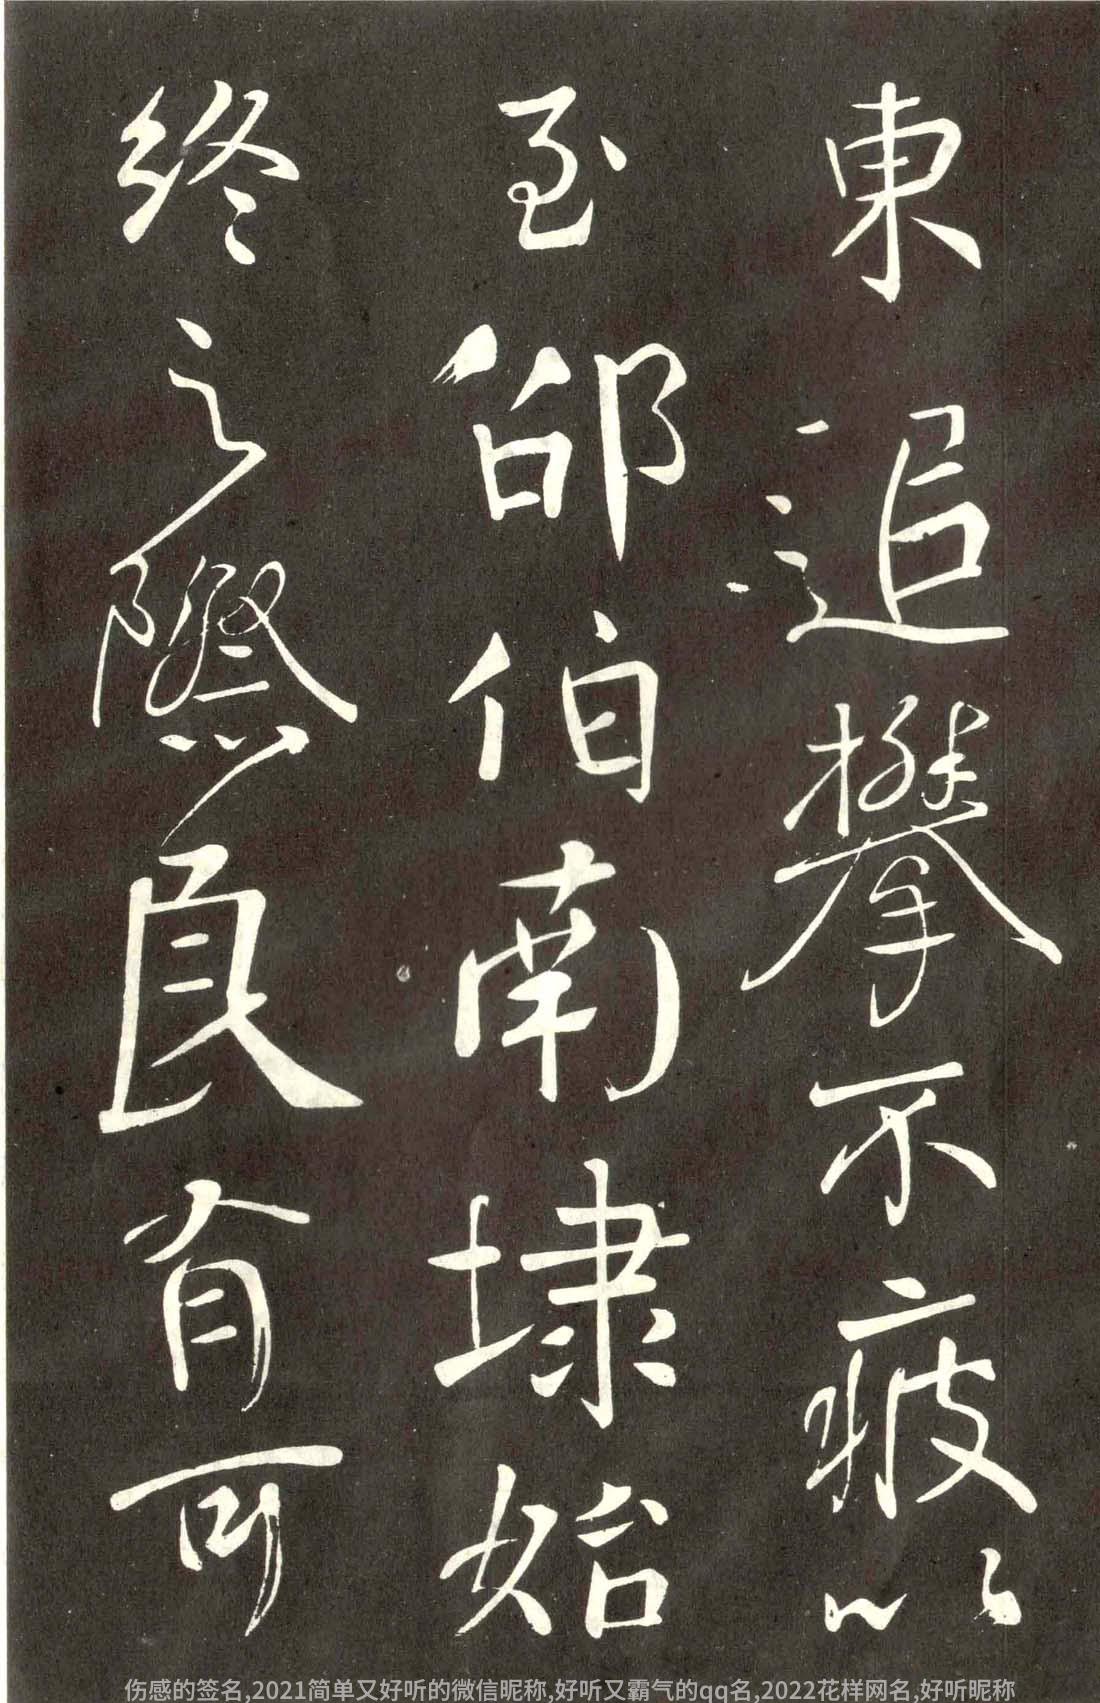 東追攀不疲以
至邵伯南埭始
終之際良有可
伤感的签名,2021简单又好听的微信昵称,好听又霸气的qq名,2022花样网名,好听昵称